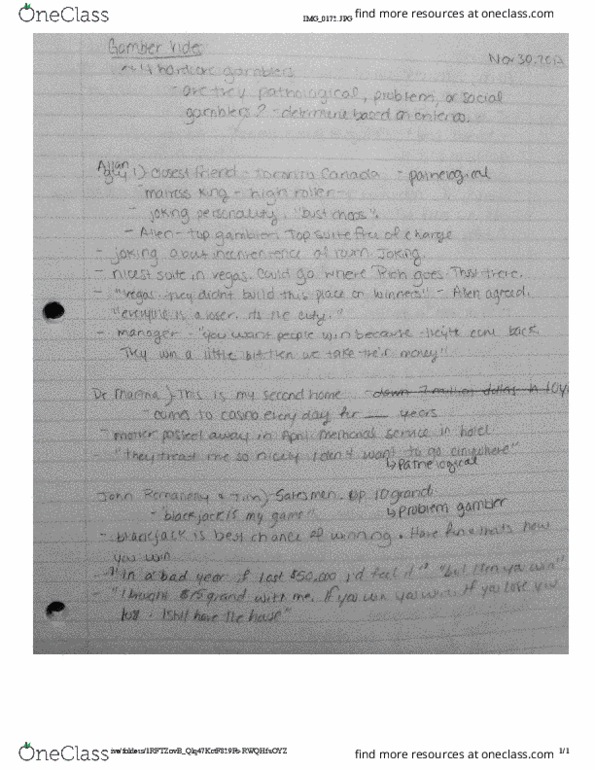 OneClass
IMG_0175.JPG
find more resources at oneclass.com
Gamber Video
Nov 30, 2017
~ 14 hardcore gamblers
- are they pathological, problem, or social
gamblers? - determine based on criteria.
Allan
guy 1) closest friend - Toronto Canada - pathological
mattress king - high roller
- joking personality. "bust chops"
- Allen - top gambler. Top suite free of charge
- joking about inconvenience of room joking.
- nicest suite in vegas. Could go where Rich goes. They there.
- "vegas - they didnt build this place on winners" - Allen agreed.
"everyone is a loser. its the city."
- manager - "you want people win because they'll come back
They win a little bit then we take their money"
Dr. Marina) - This is my second home - down 7 million dollars in 10yr
- comes to casino every day for __ years
- mother passed away in April memorial service in hotel.
- "they treat me so nicely I don't want to go anywhere"
↳ Pathological
John & Tim) - Salesmen. up 10 grand
- "blackjack is my game"
↳ Problem gambler
- blackjack is best chance of winning. Have fun & thats how
you win
- "in a bad year if I lost $50,000 I'd feel it" "but then you win"
- "I brought $15 grand with me. If you win you win if you lose you
lose - I still have the house"
OneClass
find more resources at oneclass.com
1/1